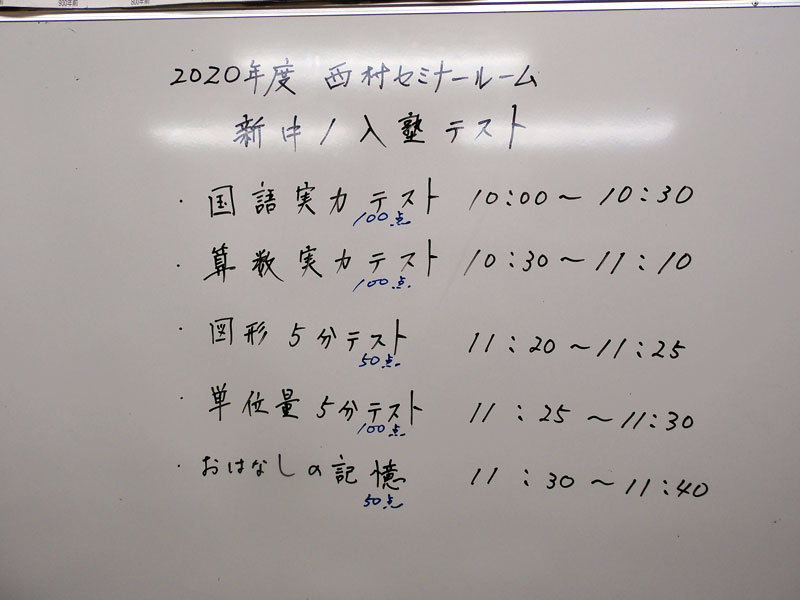 800年前 800年前
2020年度 西村セミナールーム
新中1入塾テスト
・国語実力テスト 10:00～10:30
100点
・算数実力テスト 10:30～11:10
100点
・図形5分テスト 11:20～11:25
50点
・単位量5分テスト 11:25～11:30
100点
・おはなしの記憶 11:30～11:40
50点